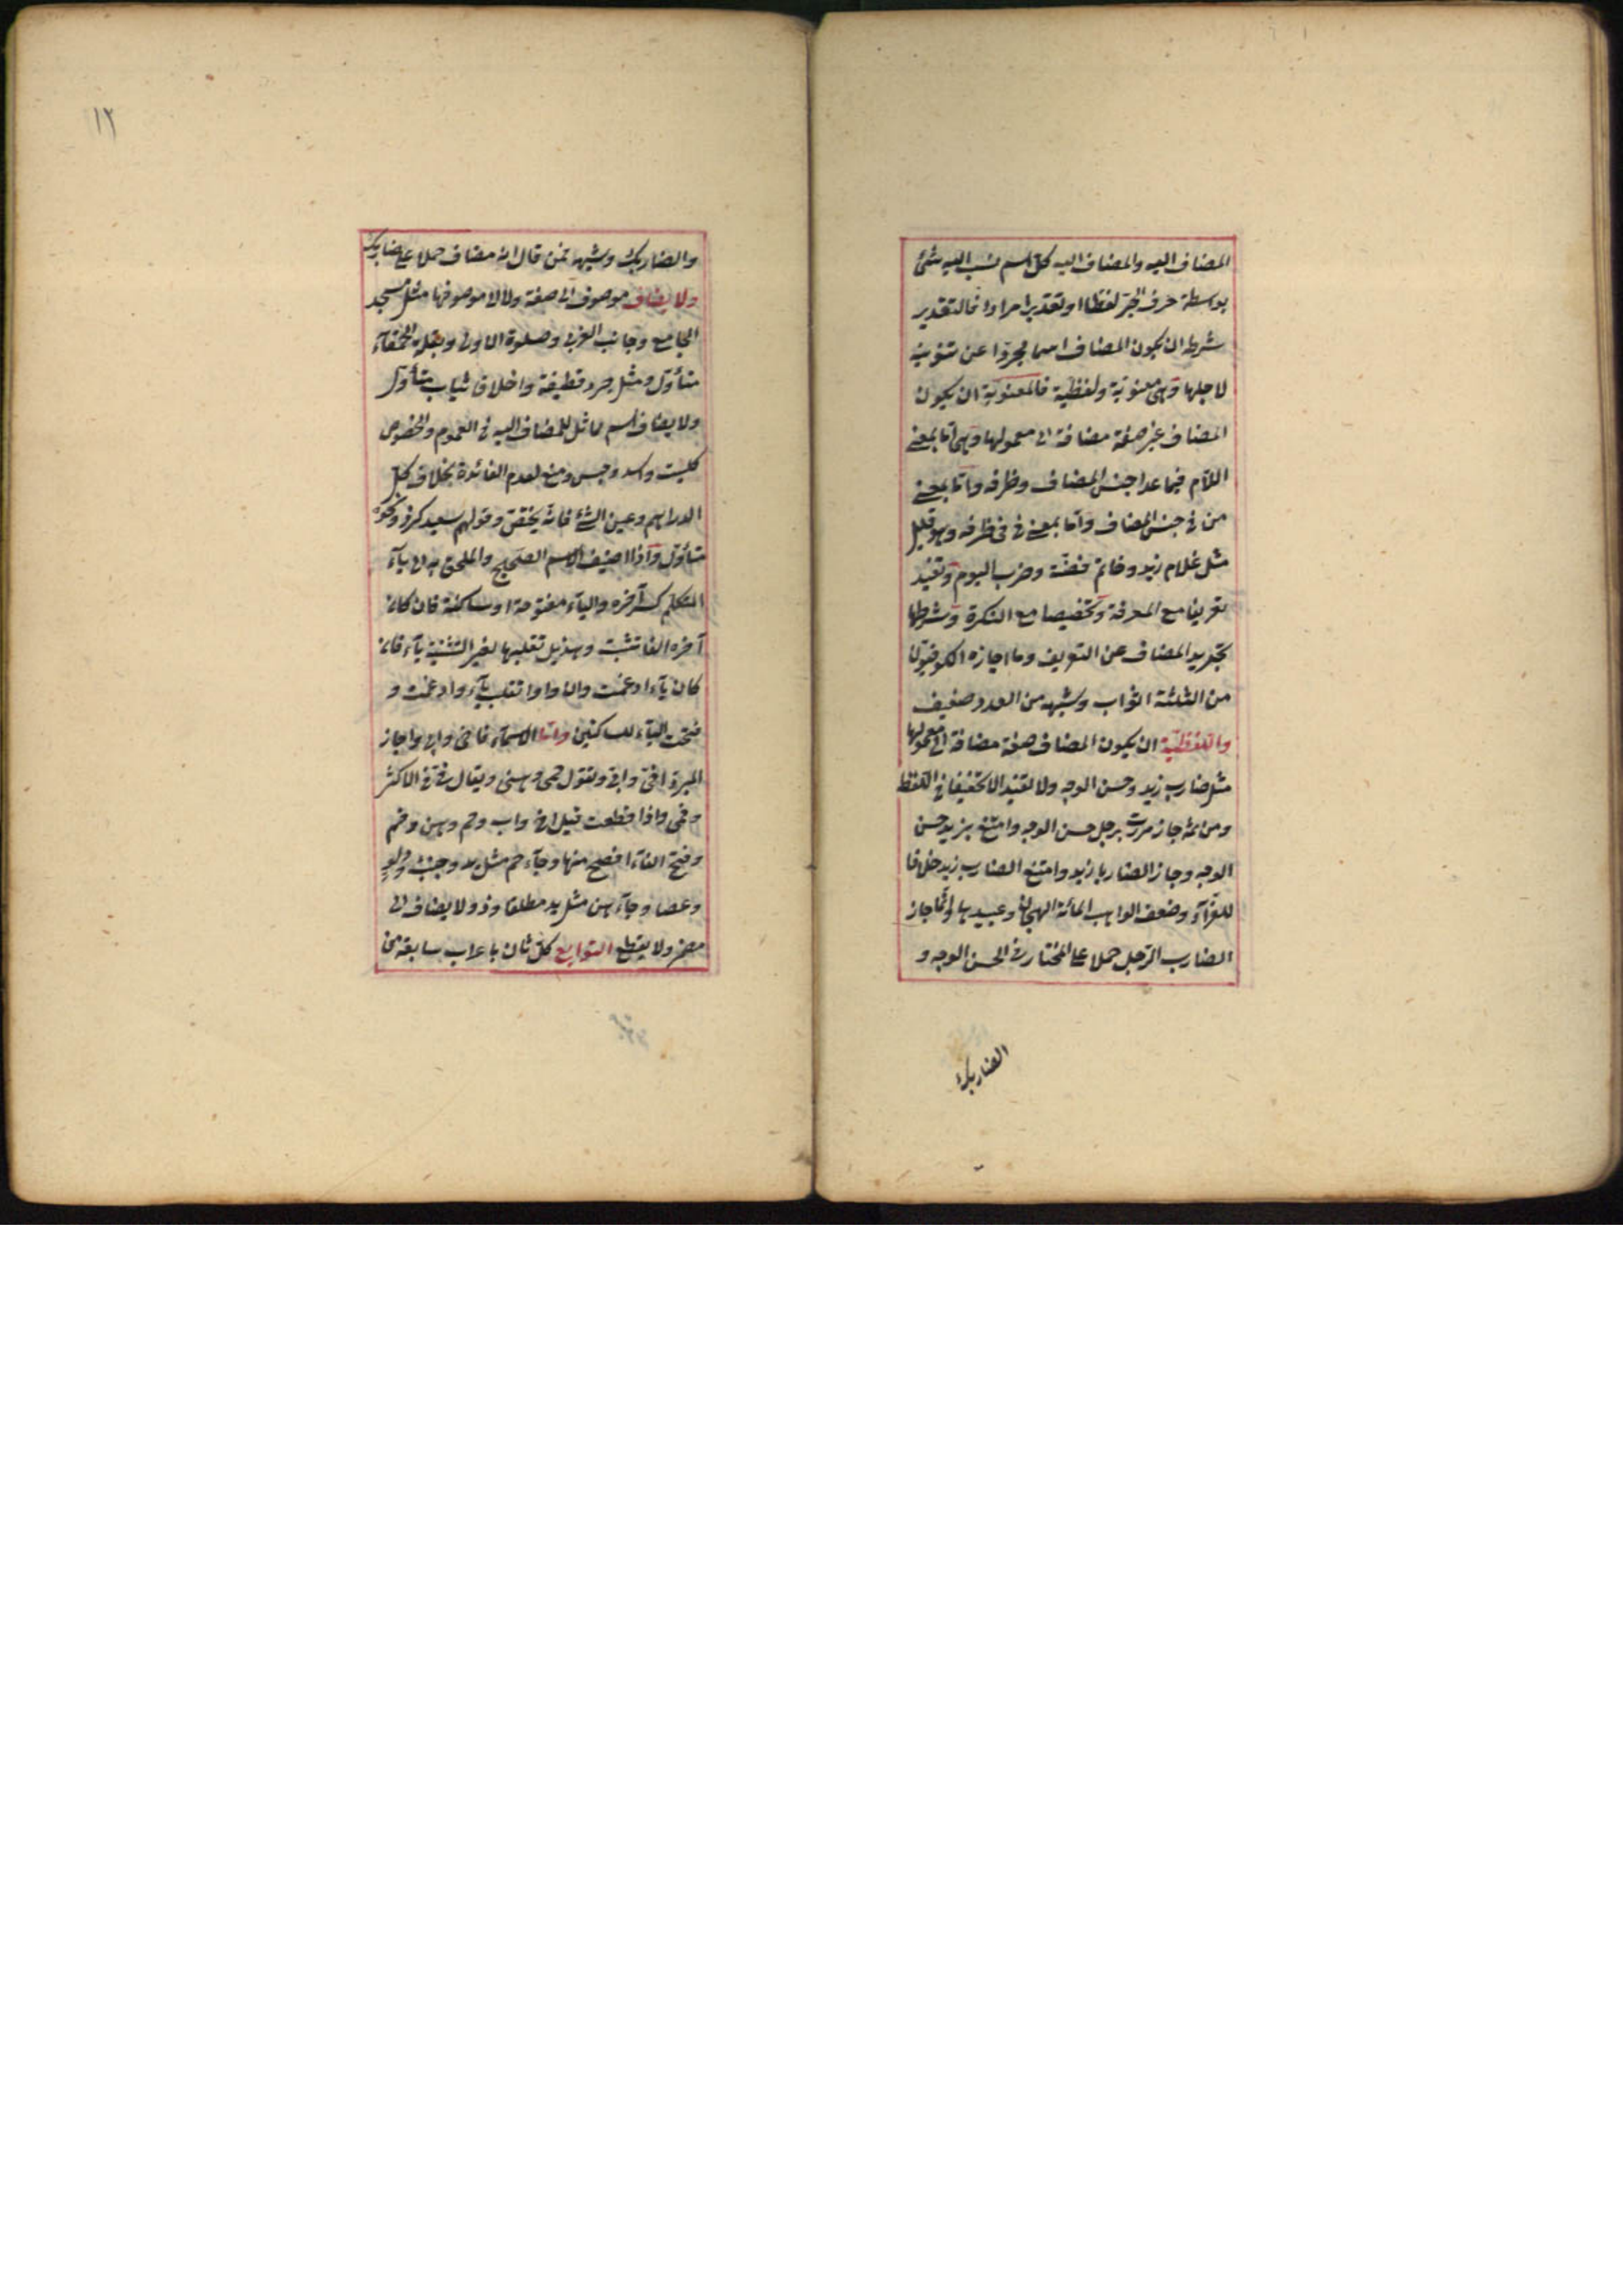 المضاف اليه والمضاف اليه كل اسم نسب اليه شئ
بوسطة حرف الجر لفظا او تقديرا مرادا فالتقدير
شرطه ان يكون المضاف اسما مجردا عن تنوينه
لاجلها وهى معنوية ولفظية فالمعنوية ان يكون
المضاف غير صفة مضافة الى معمولها وهى اما بمعنى
اللام فيما عدا جنس المضاف وظرفه واما بمعنى
من فى جنس المضاف واما بمعنى فى فى ظرفه وهو قليل
مثل غلام زيد وخاتم فضة وضرب اليوم وتفيد
تعريفا مع المعرفة وتخصيصا مع النكرة وشرطها
تجريد المضاف عن التعريف وما اجازه الكوفيون
من الثلثة الثواب وشبهه من العدد ضعيف
واللفظية ان يكون المضاف صفة مضافة الى معمولها
مثل ضارب زيد وحسن الوجه ولا تفيد الا تخفيفا فى اللفظ
ومن ثمه جاز مررت برجل حسن الوجه وامتنع بزيد حسن
الوجه وجاز الضاربا زيد وامتنع الضارب زيد خلافا
للفرآء وضعف الواهب المائة الهجان وعبدها وانما جاز
الضارب الرجل حملا على المختار فى الحسن الوجه و
الضاربك
١٢
والضاربك وشبهه فمن قال انه مضاف حملا على ضاربك
ولا يضاف موصوف الى صفة ولا الى موصوفها مثل مسجد
الجامع وجانب الغربى وصلوة الاولى وبقلة الحمقآء
متأول ومثل جرد قطيفة واخلاق ثياب متأول
ولا يضاف اسم مماثل للمضاف اليه فى العموم والخصوص
كليث واسد وحبس ومنع لعدم الفائدة بخلاف كل
الدراهم وعين الشئ فانه يختص وقولهم سعيد كرز ونحوه
متأول واذا اضيف الاسم الصحيح والملحق به الى يآء
المتكلم كسر آخره واليآء مفتوحة او ساكنة فان كان
آخره الفا تثبت وهذيل تقلبها لغير التثنية يآء فان
كان يآء ادغمت وان واوا تقلب يآء وادغمت و
فتحت اليآء للساكنين واما الاسمآء فاخى وابى واجاز
المبرد اخى وابى وتقول حمى وهنى ويقال فى فى الاكثر
وفمى واذا قطعت قيل اخ واب وحم وهن وفم
وفتح الفآء افصح منها وجآء حم مثل يد وخبء ودلو
وعصا وجآء هن مثل يد مطلقا وذو لا يضاف الى
مضمر ولا يقطع التوابع كل ثان باعراب سابقه من